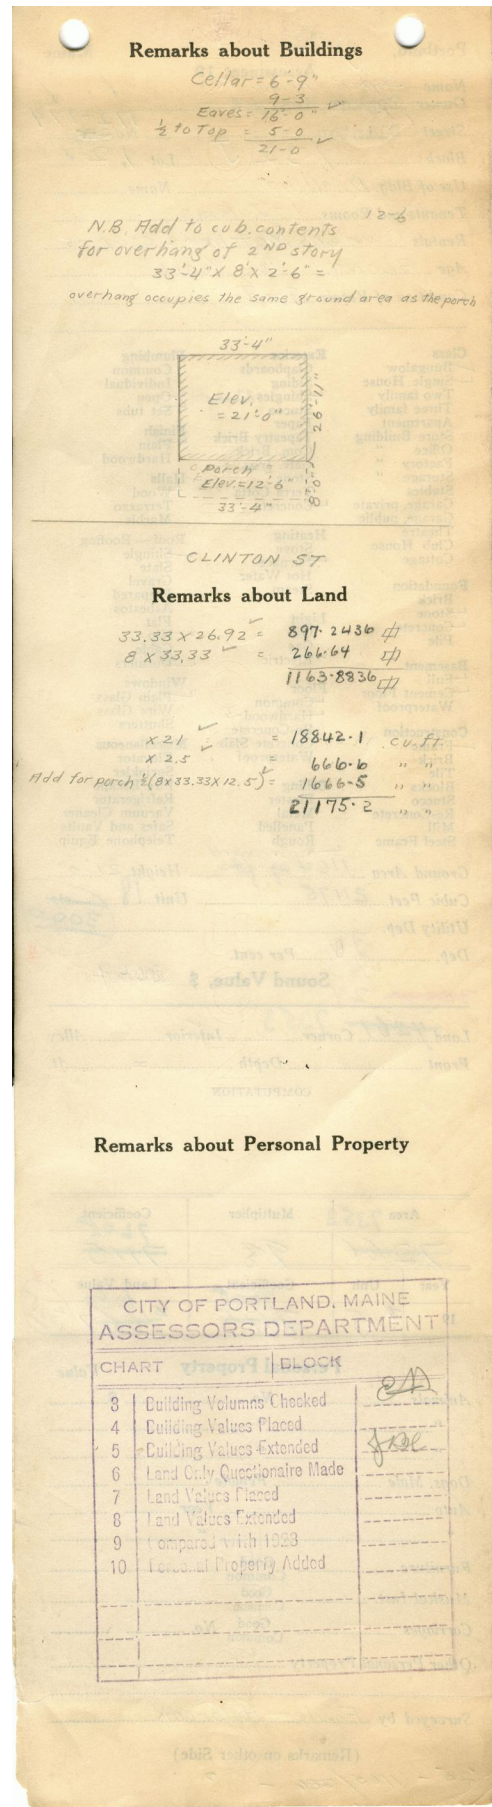 Remarks about Buildings
Cellar = 6'-9"
9-3
Eaves = 16'-0"
½ to Top = 5-0
21-0
12-6
N.B. Add to cub. contents
for overhang of 2ND story
33'-4" X 8' X 2'-6" =
overhang occupies the same ground area as the porch
33'-4"
Elev.
= 21'-0"
26'-11"
Porch
Elev. = 12'-6"
8'-0"
33'-4"
CLINTON ST
Remarks about Land
33.33 X 26.92 = 897.2436
8 X 33.33 = 266.64
1163.8836
X 21 = 18842.1 cu. ft.
X 2.5 = 666.6 " "
Add for porch ½(8x33.33x12.5) = 1666.5 " "
21175.2 " "
Remarks about Personal Property
CITY OF PORTLAND, MAINE
ASSESSORS DEPARTMENT
CHART BLOCK
3 Building Volumns Checked
4 Building Values Placed
5 Building Values Extended
6 Land Only Questionaire Made
7 Land Values Placed
8 Land Values Extended
9 Compared With 1923
10 Personal Property Added